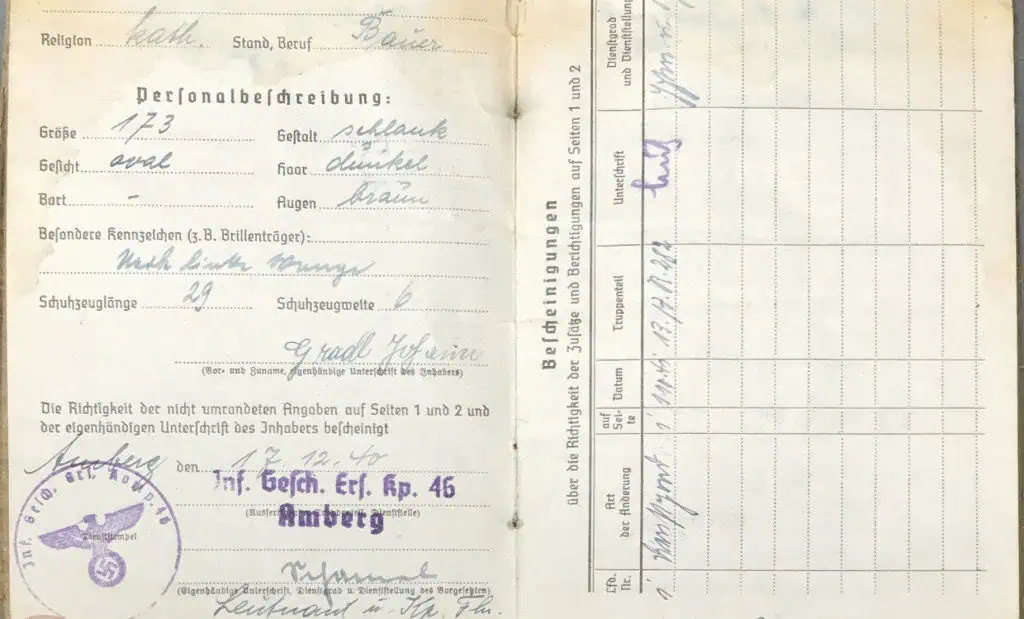 Religion kath. Stand, Beruf Bauer
Personalbeschreibung:
Größe 173 Gestalt schlank
Gesicht oval Haar dunkel
Bart - Augen braun
Besondere Kennzeichen (z. B. Brillenträger):
linke Wange
Schuhzeuglänge 29 Schuhzeugweite 6
Gradl Johann
(Vor- und Zuname, eigenhändige Unterschrift des Inhabers)
Die Richtigkeit der nicht umrandeten Angaben auf Seiten 1 und 2 und
der eigenhändigen Unterschrift des Inhabers bescheinigt
Amberg den 17.12.40
Inf. Gesch. Ers. Kp. 46
Amberg
Inf. Gesch. Ers. Komp. 46
Dienststempel
(Eigenhändige Unterschrift, Dienstgrad u. Dienststellung des Vorgesetzten)
Leutnant u. Kp. Fhr.
Bescheinigungen
über die Richtigkeit der Zusätze und Berichtigungen auf Seiten 1 und 2
Lfd. Nr.
Art der Änderung
auf Sei-
te
Datum
Truppenteil
Unterschrift
Dienstgrad
und Dienststellung
1 1